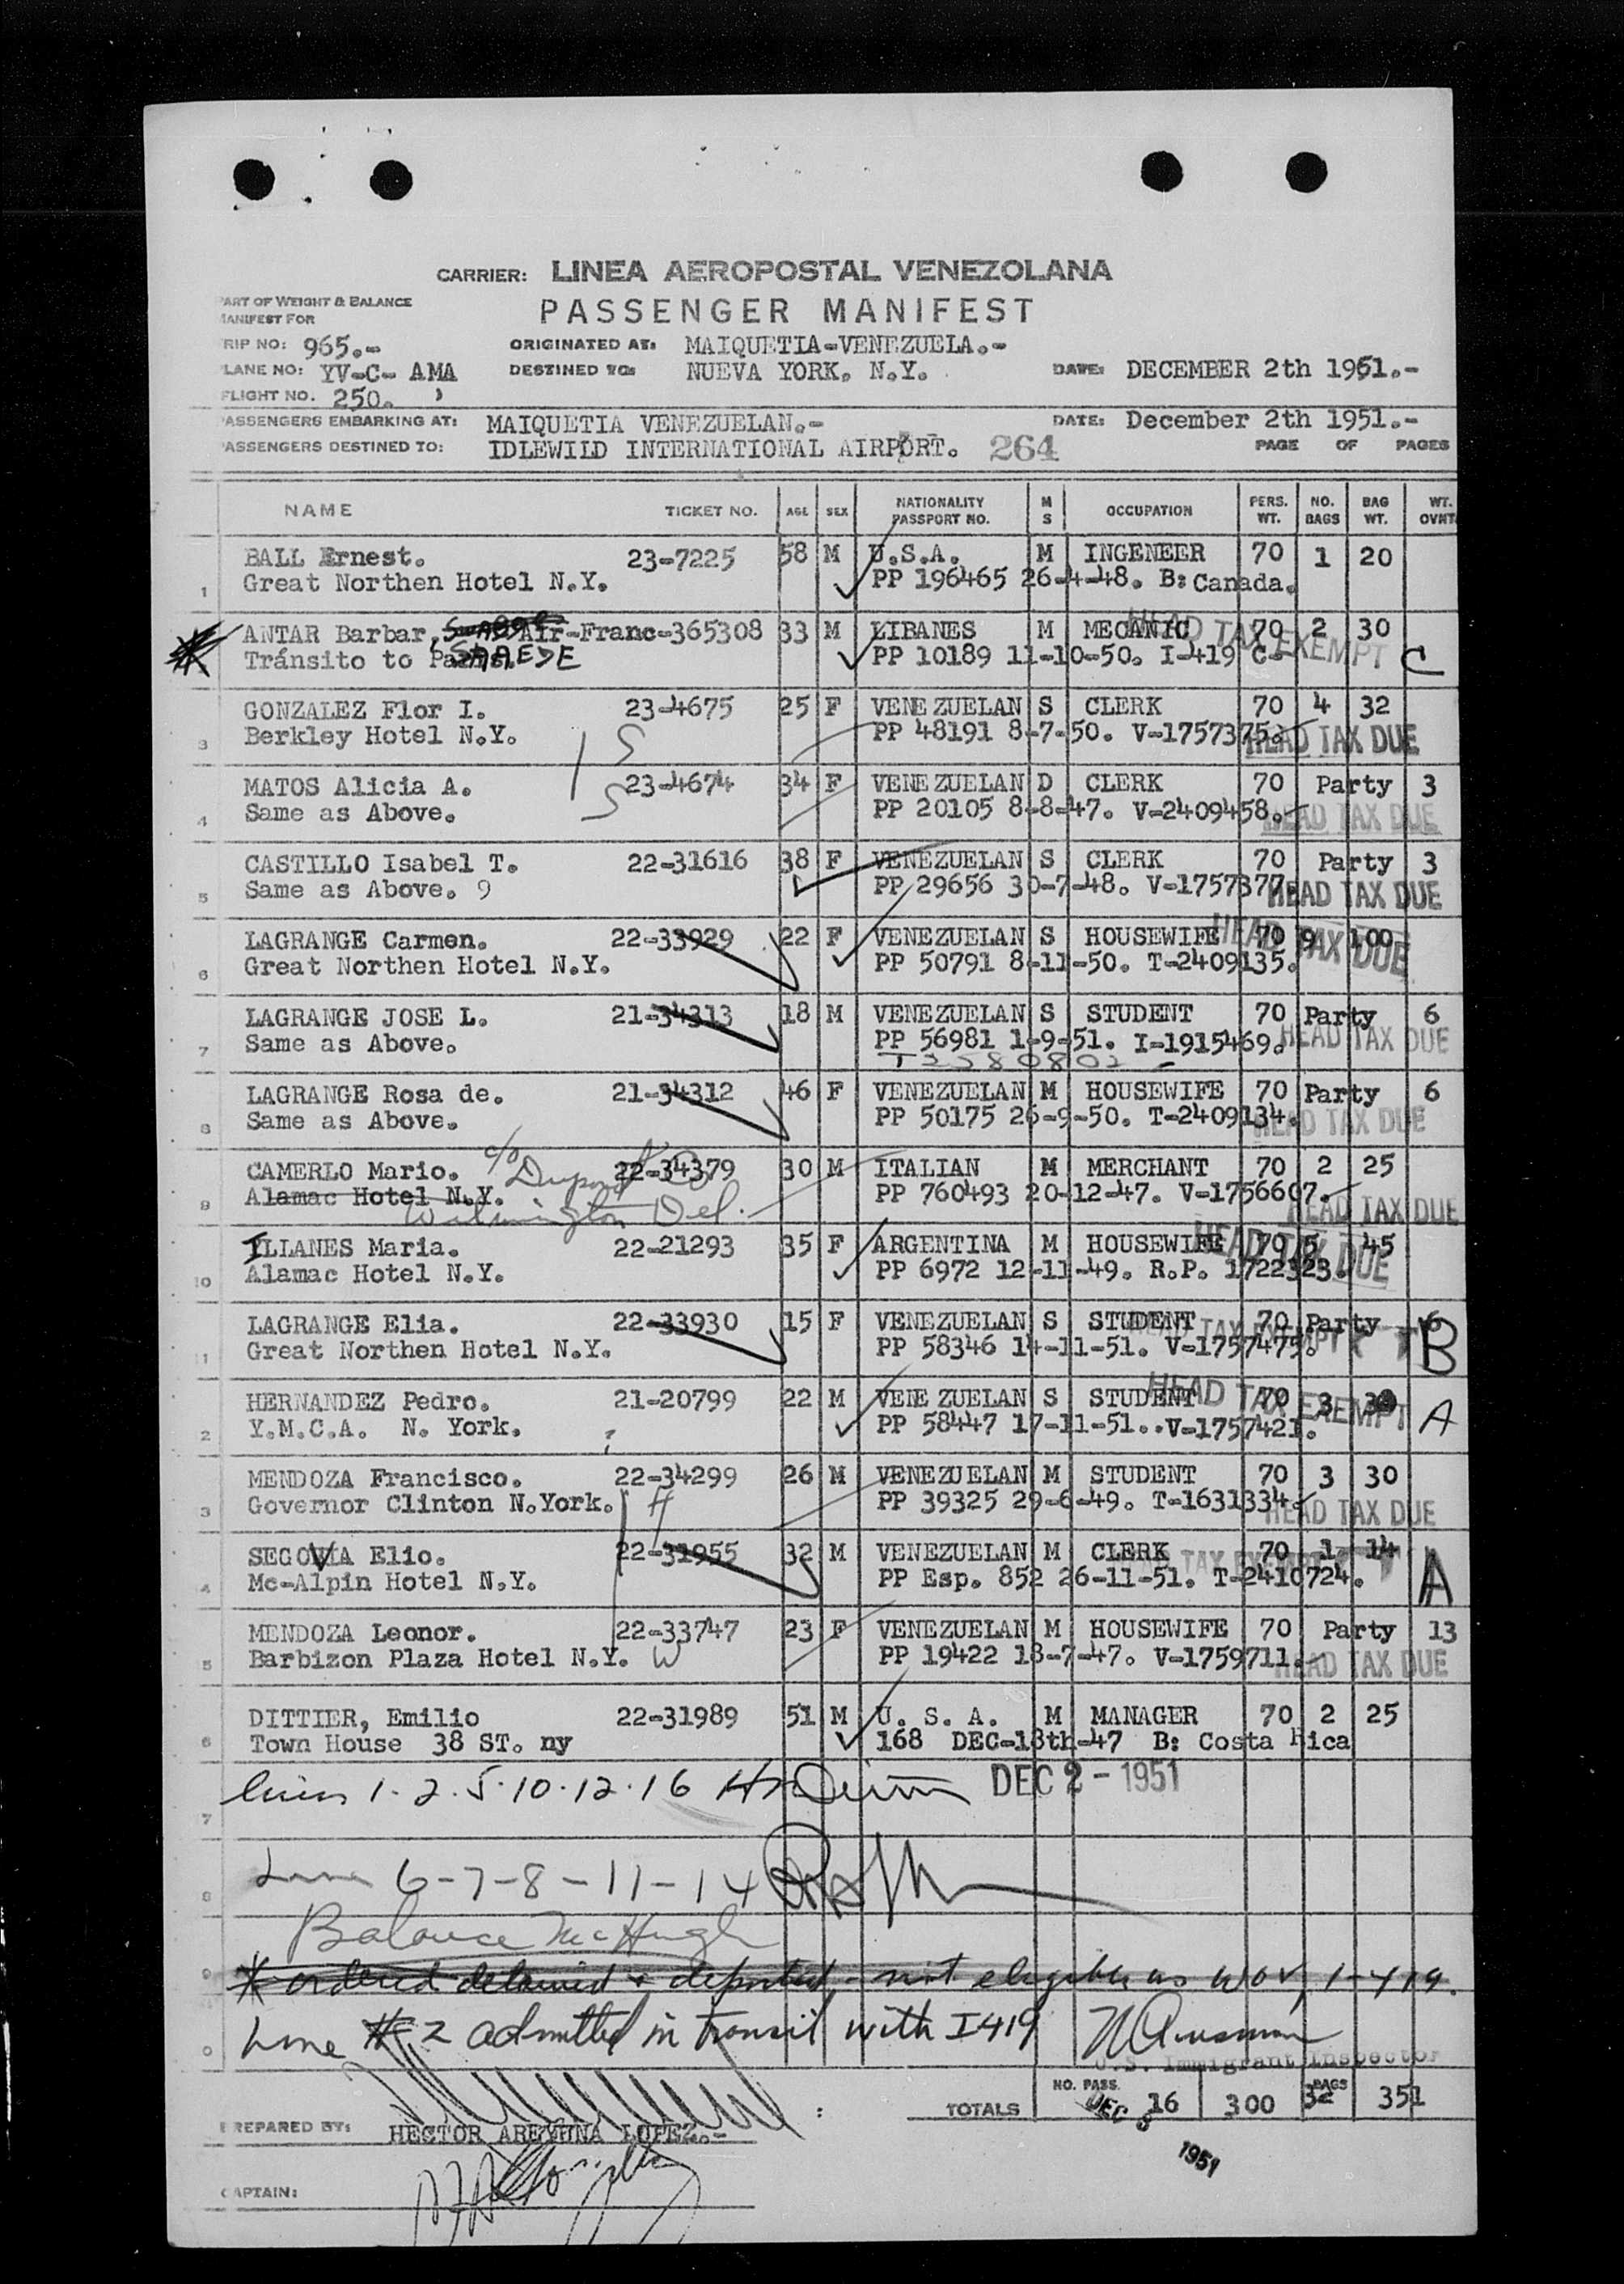 CARRIER: LINEA AEROPOSTAL VENEZOLANA
PART OF WEIGHT & BALANCE
MANIFEST FOR
PASSENGER MANIFEST
RIP NO: 965.-
ORIGINATED AT: MAIQUETIA-VENEZUELA.-
LANE NO: YV-C- AMA
DESTINED TO: NUEVA YORK, N.Y.
DATE: DECEMBER 2th 1951.-
FLIGHT NO. 250.
ASSENGERS EMBARKING AT: MAIQUETIA VENEZUELAN.-
DATE: December 2th 1951.-
ASSENGERS DESTINED TO: IDLEWILD INTERNATIONAL AIRPORT. 264
PAGE OF PAGES
NAME TICKET NO. AGE SEX NATIONALITY PASSPORT NO. M S OCCUPATION PERS. WT. NO. BAGS BAG WT. WT. OVNT
BALL Ernest. 23-7225 58 M U.S.A. M INGENEER 70 1 20
1 Great Northen Hotel N.Y. PP 196465 26-4-48. B: Canada.
ANTAR Barbar, Air-Franc-365308 33 M LIBANES M MECANIC 70 2 30
HEAD TAX EXEMPT C
Tránsito to SAAEDE PP 10189 11-10-50. I-419 C-
GONZALEZ Flor I. 23-4675 25 F VENEZUELAN S CLERK 70 4 32
3 Berkley Hotel N.Y. S PP 48191 8-7-50. V-1757375. HEAD TAX DUE
MATOS Alicia A. S 23-4674 34 F VENEZUELAN D CLERK 70 Party 3
4 Same as Above. PP 20105 8-8-47. V-2409458. HEAD TAX DUE
CASTILLO Isabel T. 22-31616 38 F VENEZUELAN S CLERK 70 Party 3
5 Same as Above. 9 PP 29656 30-7-48. V-1757377. HEAD TAX DUE
LAGRANGE Carmen. 22-33929 22 F VENEZUELAN S HOUSEWIFE 70 9 100
HEAD TAX DUE
6 Great Northen Hotel N.Y. PP 50791 8-11-50. T-2409135.
LAGRANGE JOSE L. 21-34313 18 M VENEZUELAN S STUDENT 70 Party 6
7 Same as Above. PP 56981 1-9-51. I-1915469. HEAD TAX DUE
T2580802
LAGRANGE Rosa de. 21-34312 46 F VENEZUELAN M HOUSEWIFE 70 Party 6
8 Same as Above. PP 50175 26-9-50. T-2409134. HEAD TAX DUE
c/o Dupont
CAMERLO Mario. 22-34379 30 M ITALIAN M MERCHANT 70 2 25
9 Alamac Hotel N.Y. PP 760493 20-12-47. V-1756607.
Wilmington Del. HEAD TAX DUE
ILLANES Maria. 22-21293 35 F ARGENTINA M HOUSEWIFE 70 5 45
HEAD TAX DUE
10 Alamac Hotel N.Y. PP 6972 12-11-49. R.P. 1722323.
LAGRANGE Elia. 22-33930 15 F VENEZUELAN S STUDENT 70 Party 6
HEAD TAX EXEMPT B
11 Great Northen Hotel N.Y. PP 58346 14-11-51. V-1757475.
HERNANDEZ Pedro. 21-20799 22 M VENEZUELAN S STUDENT 70 3
HEAD TAX EXEMPT A
2 Y.M.C.A. N. York. PP 58447 17-11-51..V-1757421.
MENDOZA Francisco. 22-34299 26 M VENEZUELAN M STUDENT 70 3 30
3 Governor Clinton N.York. H PP 39325 29-6-49. T-1631334. HEAD TAX DUE
SEGOVIA Elio. 22-31955 32 M VENEZUELAN M CLERK 70 1 14
HEAD TAX EXEMPT A
4 Mc-Alpin Hotel N.Y. PP Esp. 852 26-11-51. T-2410724.
MENDOZA Leonor. 22-33747 23 F VENEZUELAN M HOUSEWIFE 70 Party 13
5 Barbizon Plaza Hotel N.Y. W PP 19422 18-7-47. V-1759711. HEAD TAX DUE
DITTIER, Emilio 22-31989 51 M U. S. A. M MANAGER 70 2 25
6 Town House 38 ST. ny 168 DEC-18th-47 B: Costa Rica
lines 1-2.5.10.12.16 DEC 2 - 1951
7
Line 6-7-8-11-14
8
Balance McHugh
9 * ordered detained & deported - not eligible as WOV, I-419.
0 Line #2 admitted in transit with I419
U.S. Immigrant Inspector
TOTALS NO. PASS. 16 300 BAGS 32 351
DEC 3 1951
PREPARED BY: HECTOR AREVHNA LOPEZ.-
CAPTAIN: